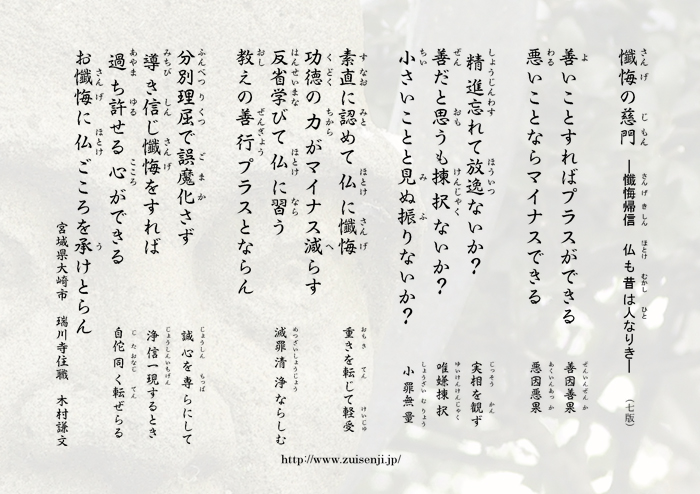 懺悔の慈門 ―懺悔帰信 仏も昔は人なりき― (七版)
善いことすればプラスができる 善因善果
悪いことならマイナスできる 悪因悪果
精進忘れて放逸ないか? 実相を観ず
善だと思うも揀択ないか? 唯嫌揀択
小さいことと見ぬ振りないか? 小罪無量
素直に認めて仏に懺悔 重きを転じて軽受
功徳の力がマイナス減らす 滅罪清浄ならしむ
反省学びて仏に習う
教えの善行プラスとならん
分別理屈で誤魔化さず 誠心を専らにして
導き信じ懺悔をすれば 浄信一現するとき
過ち許せる心ができる 自佗同く転ぜらる
お懺悔に仏ごころを承けとらん
宮城県大崎市 瑞川寺住職 木村謙文
http://www.zuisenji.jp/